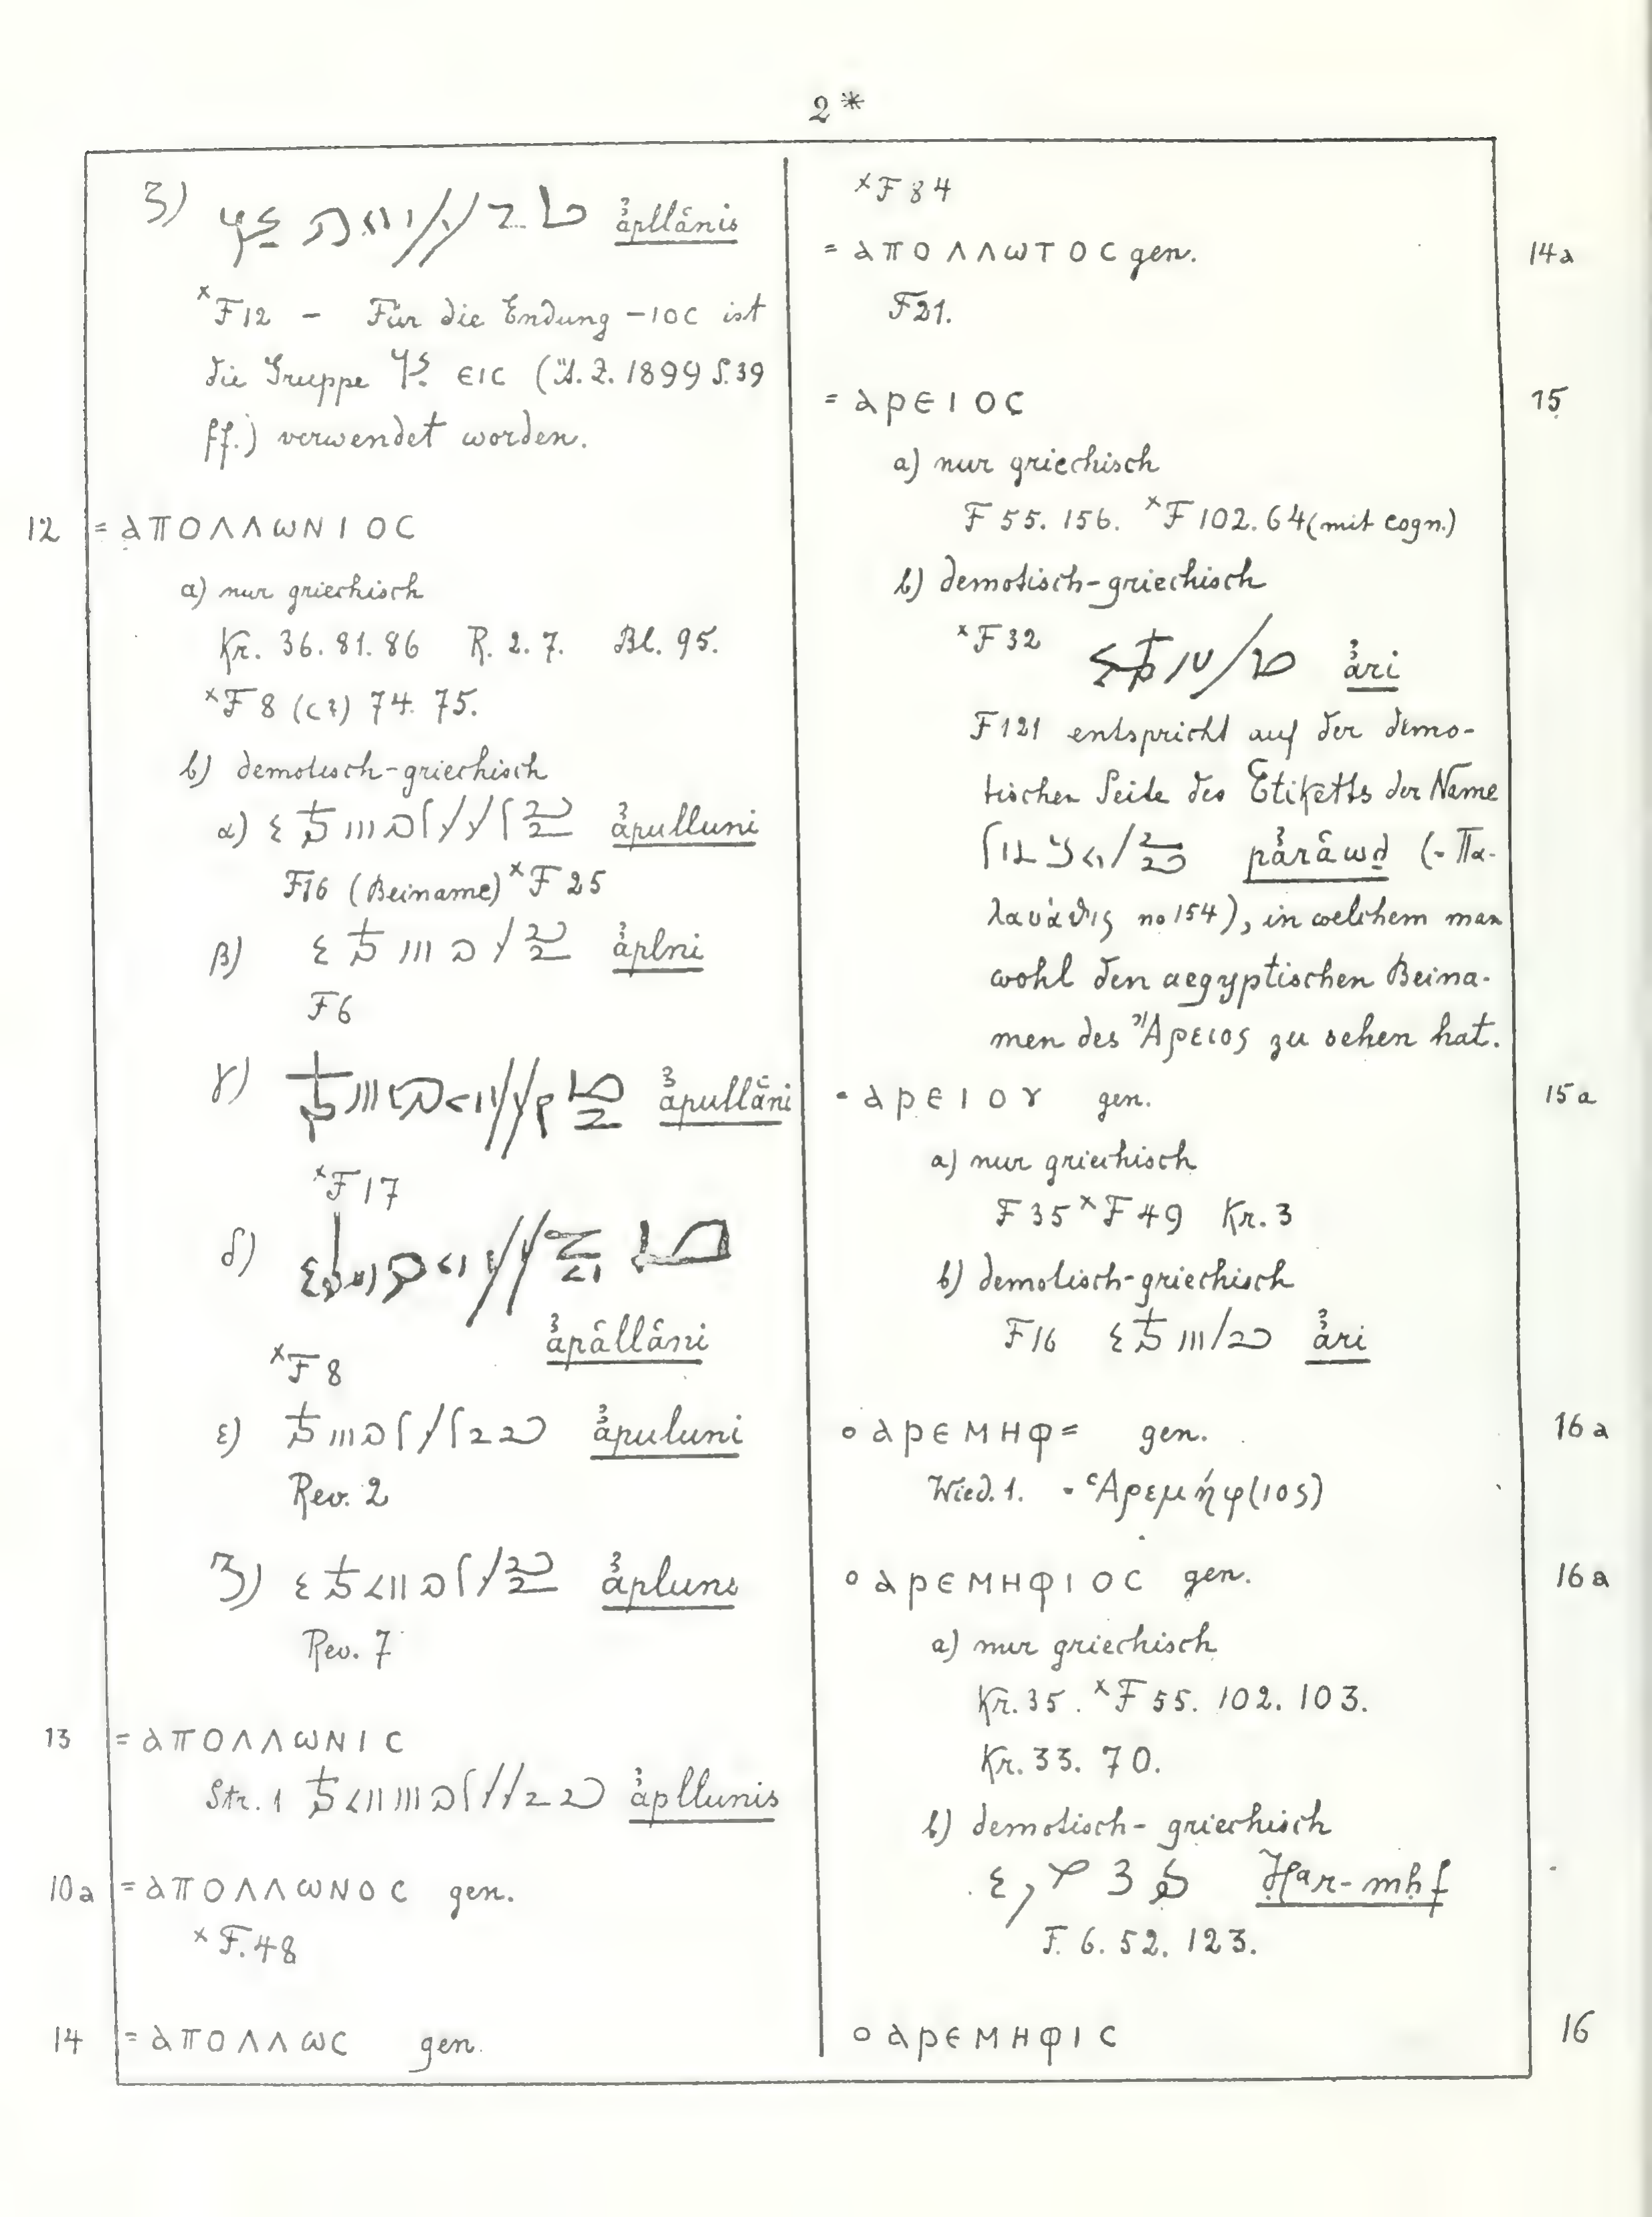 2*
3) ꜣ̓pllꜥnis
×F12 – Für die Endung -ΙΟC ist
die Gruppe ЄΙC (Ä.Z. 1899 S. 39
ff.) verwendet worden.
12 = ΑΠΟΛΛωΝΙΟC
a) nur griechisch
Kr. 36. 81. 86 R. 2. 7. Bl. 95.
×F 8 (c?) 74. 75.
b) demotisch-griechisch
α) ꜣ̓pulluni
F16 (Beiname) ×F 25
β) ꜣ̓plni
F6
γ) ꜣ̓pullꜥni
×F17
δ)
ꜣ̓pꜥllꜥni
×F 8
ε) ꜣ̓puluni
Rev. 2
ꜣ̓pluns
Rev. 7
13 = ΑΠΟΛΛωΝΙC
Str. 1 ꜣ̓pllunis
10a = ΑΠΟΛΛωΝΟC gen.
×F. 48
14 = ΑΠΟΛΛωC gen.
×F 84
= ΑΠΟΛΛωΤΟC gen. 14a
F21.
= ΑΡЄΙΟC 15
a) nur griechisch
F 55. 156. ×F 102. 64 (mit cogn.)
b) demotisch-griechisch
×F 32 ꜣ̓ri
F121 entspricht auf der demo-
tischen Seite des Etiketts der Name
pꜣ̓rꜥwḏ (= Πα-
λαυάθις no 154), in welchem man
wohl den aegyptischen Beina-
men des Ἄρειος zu sehen hat.
= ΑΡЄΙΟΥ gen. 15a
a) nur griechisch
F 35 ×F 49 Kr. 3
b) demotisch-griechisch
F16 ꜣ̓ri
o ΑΡЄΜΗΦ= gen. 16a
Wied. 1. = Ἁρεμήφ(ιος)
o ΑΡЄΜΗΦΙΟC gen. 16a
a) nur griechisch
Kr. 35. ×F 55. 102. 103.
Kr. 33. 70.
b) demotisch-griechisch
Ḥar-mḥf
F. 6. 52. 123.
o ΑΡЄΜΗΦΙC 16